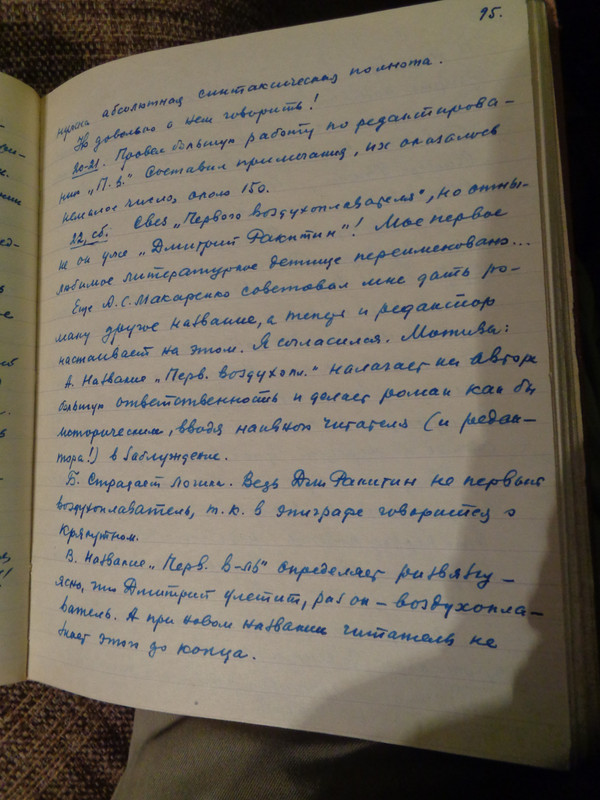 95.
нужна абсолютная синтаксическая полнота.
Но довольно о нем говорить!
20-21. Провел большую работу по редактирова-
нию „П. В." Составил примечания, их оказалось
немалое число, около 150.
22, сб. Свез „Первого воздухоплавателя", но отны-
не он уже „Дмитрий Ракитин"! Мое первое
любимое литературное детище переименовано...
Еще А. С. Макаренко советовал мне дать ро-
ману другое название, а теперь и редактор
настаивает на этом. Я согласился. Мотивы:
А. Название „Перв. воздухопл." налагает на автора
большую ответственность и делает роман как бы
историческим, вводя наивного читателя (и редак-
тора!) в заблуждение.
Б. Страдает логика. Ведь Дм. Ракитин не первый
воздухоплаватель, т. к. в эпиграфе говорится о
Крякутном.
В. Название „Перв. в-ль" определяет развязку —
ясно, что Дмитрий улетит, раз он — воздухопла-
ватель. А при новом названии читатель не
знает этого до конца.